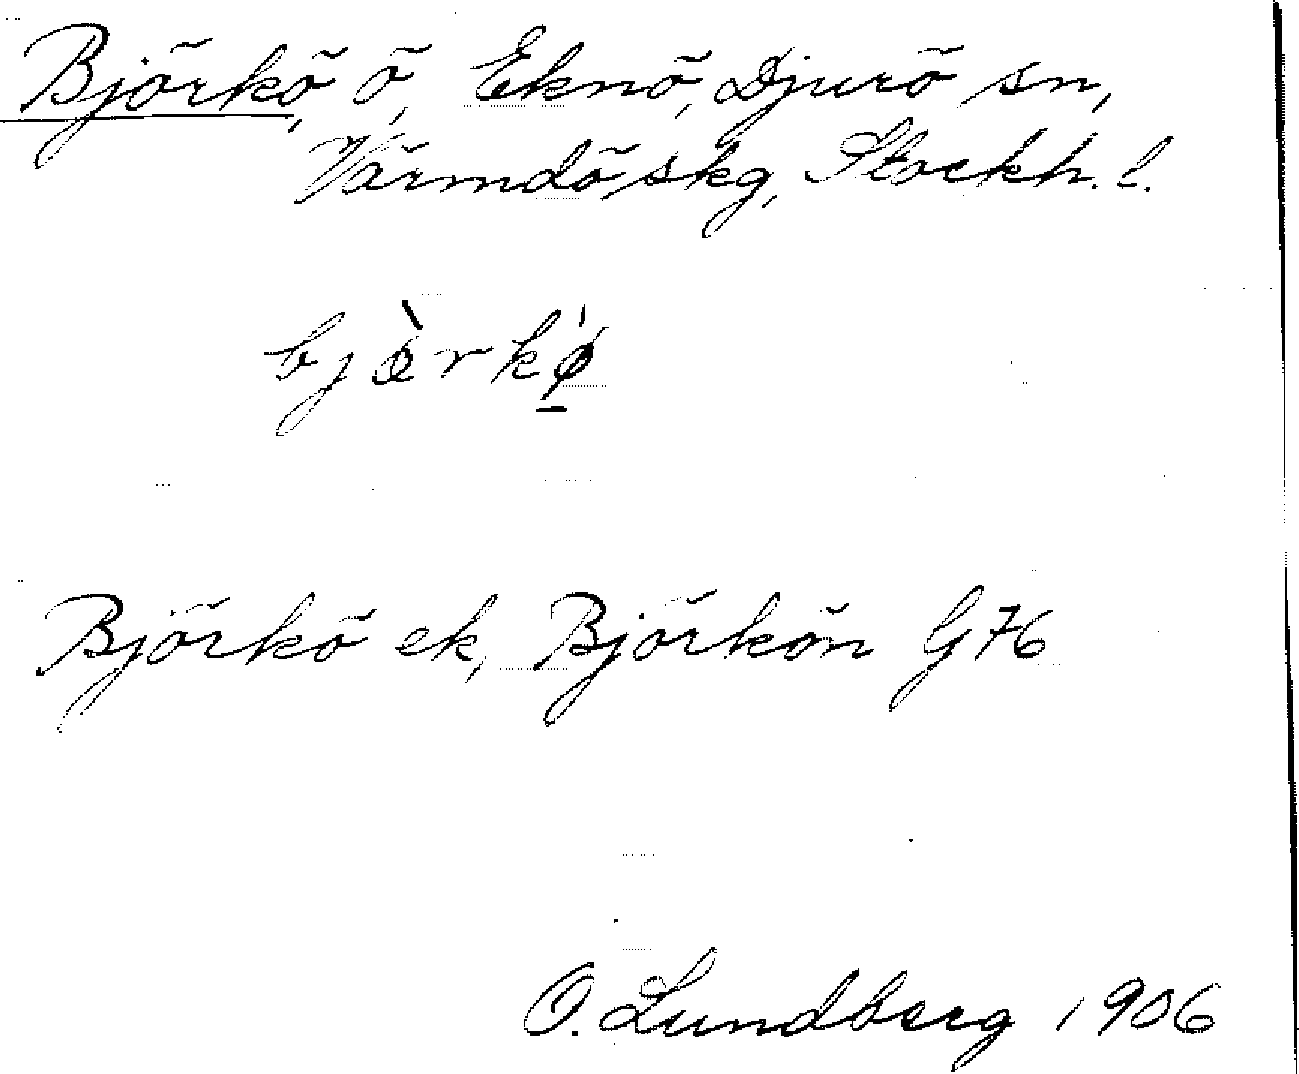 Björkö, ö, Eknö, Djurö sn,
Värmdö skg, Stockh. l.
bjö̀rkǿ
Björkö ek, Björkön G76
O. Lundberg 1906